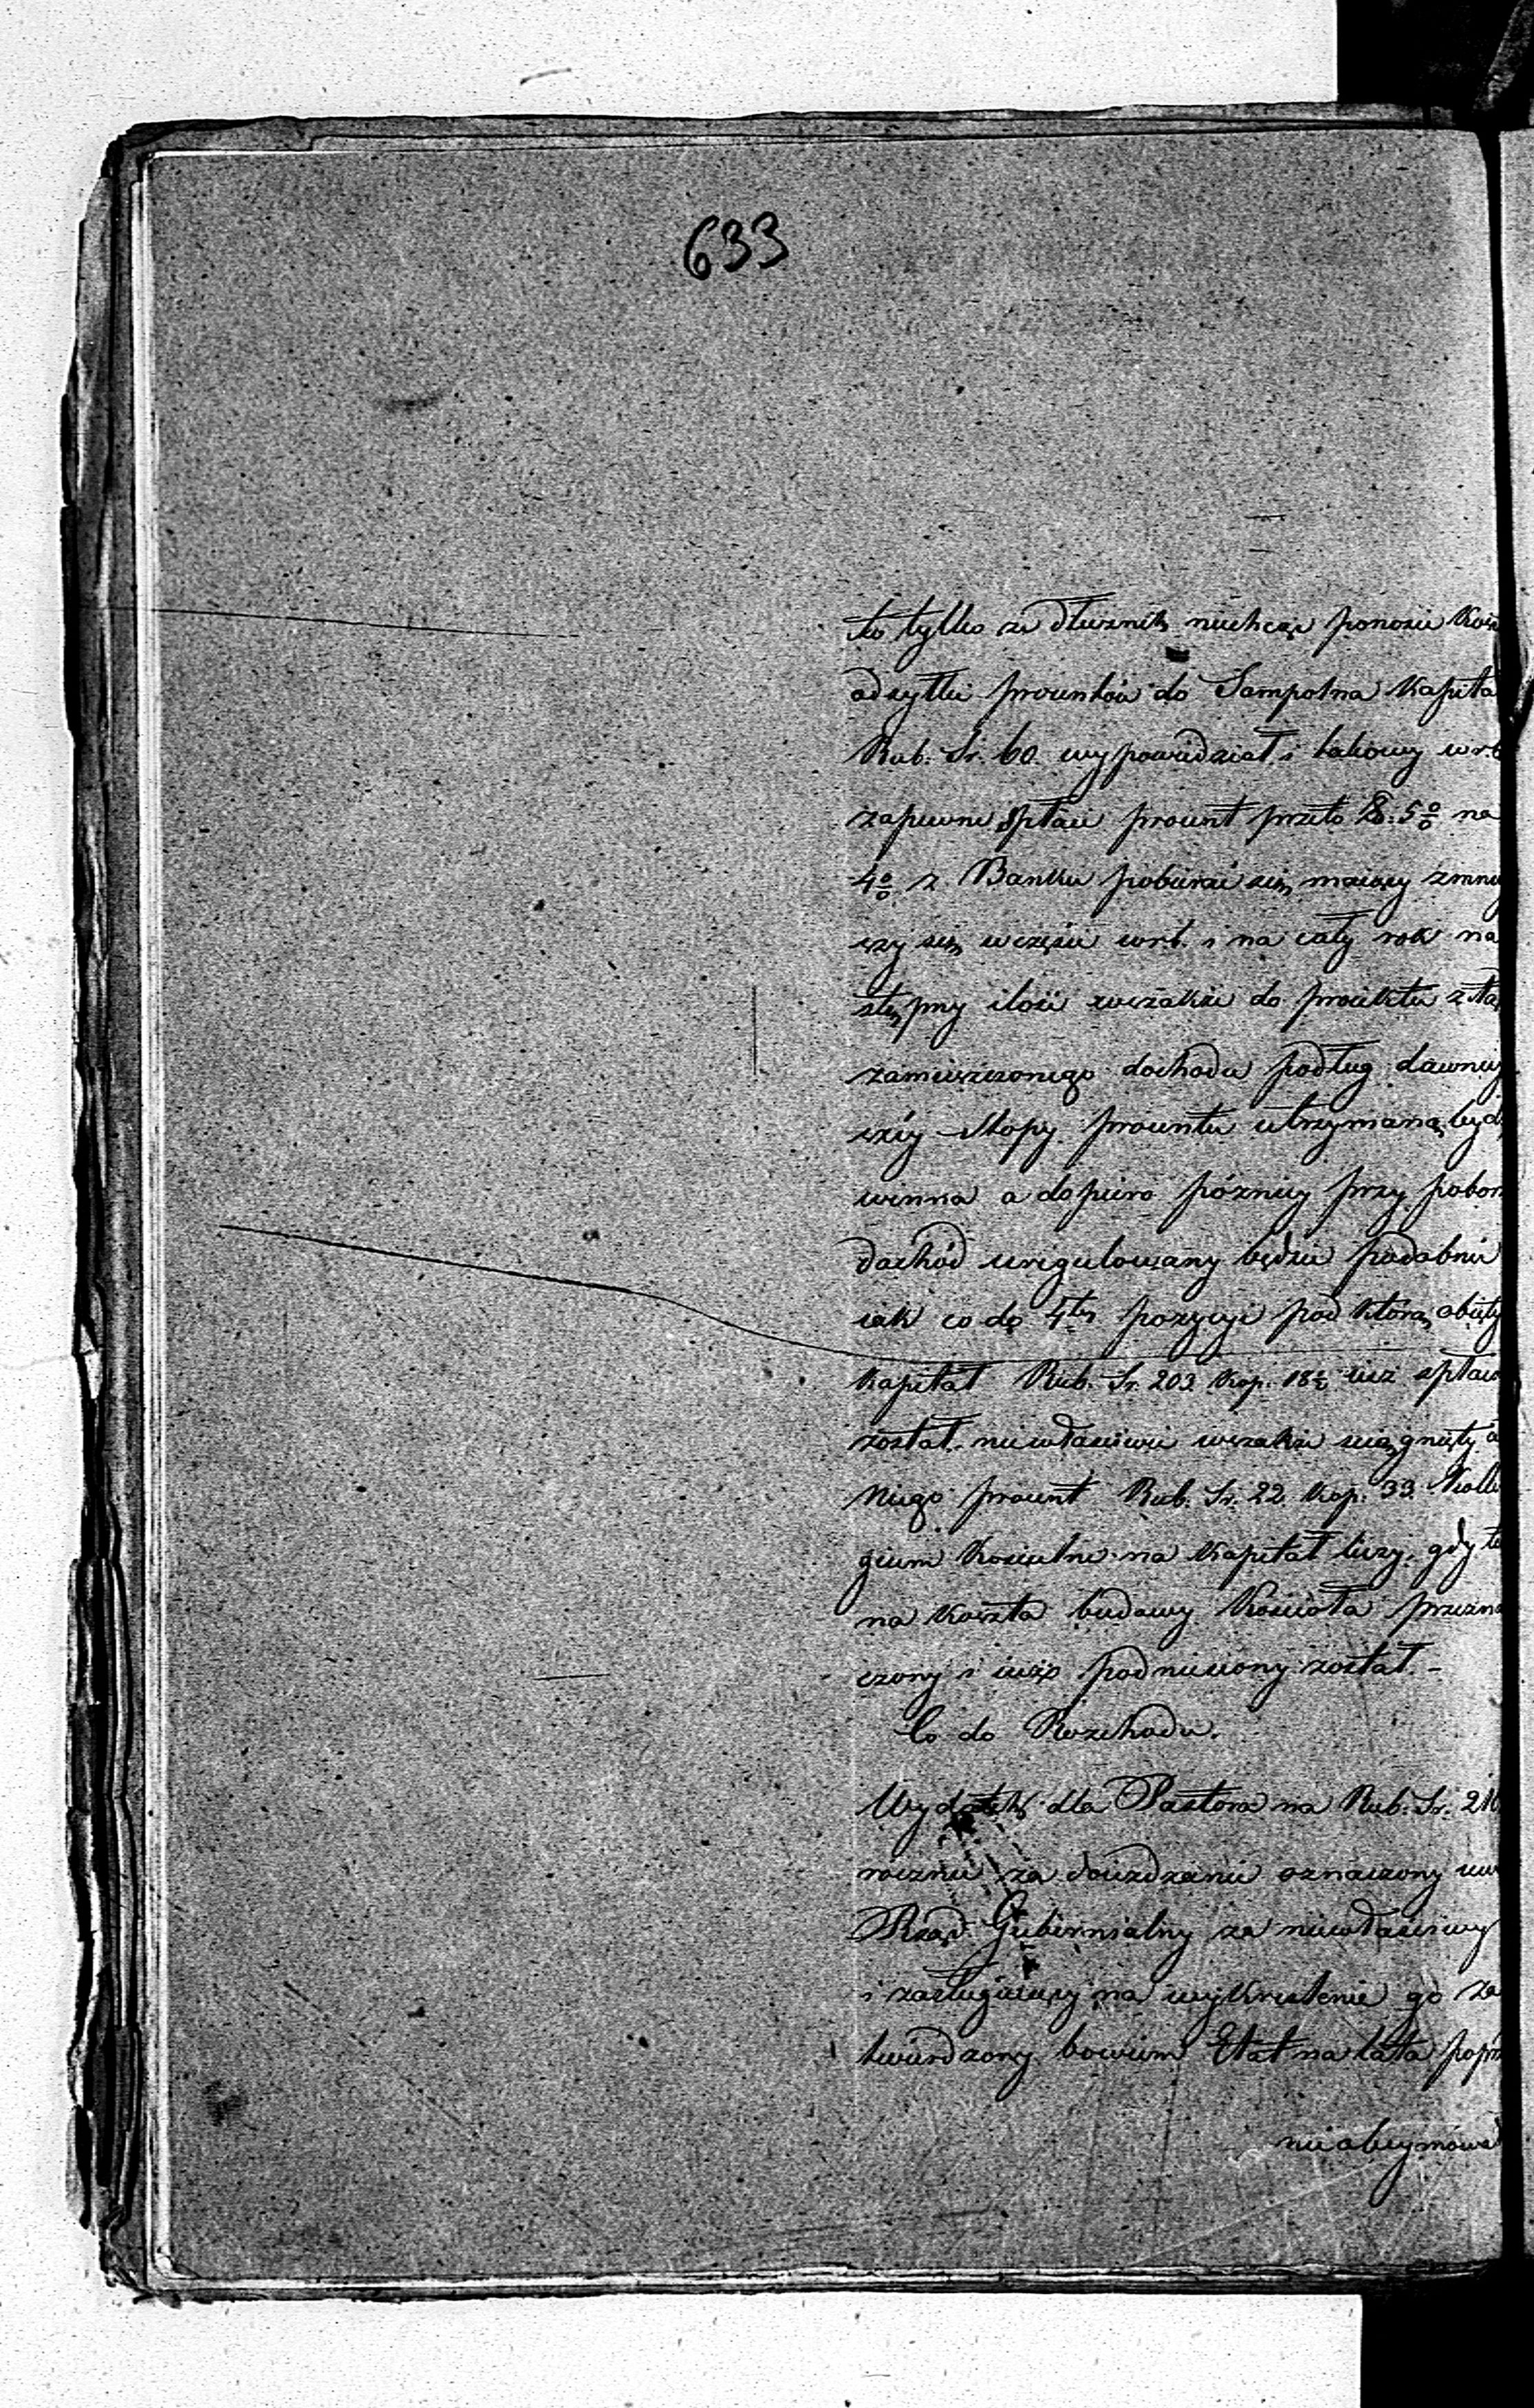 633
to tylko że dłużnik niechcąc ponosić Kosz
odsyłki procentów do Sampolna Kapita
Rub. Sr. 60 wypowiedział i takowy wrb
zapewne spłaci procent przeto z 5% na
4% z Banku pobierać się maiący zmniey
szy się w części wrb. i na cały rok na
stępny ilość wszakże do proiektu
zamieszczonego dochodu podług dawniey
széy stopy procentu utrzymaną byd
winna a dopiero pózniey przy pobor
dochód uregulowany będzie podobnie
iak co do 4tey pozycyi pod którą obięty
Kapitał Rub. Sr. 203 Kop. 18½ iuż spłaco
został, niewłaściwie wszakże ściągnięty o
niego procent Rub. Sr. 22 Kop. 33 Kolle
gium Kościelne na Kapitał liczy, gdy te
na koszta budowy Kościoła przezna
czony i iuż podniesiony został. -
Co do Rozchodu.
Wydatek dla Pastora na Rub. Sr. 210
rocznie za doiezdzanie oznaczony uw
Rząd Gubernialny za niewłaściwy
i zasługuiący na wykreślenie go za
twierdzony bowiem Etat na lata poprz
nieobeymował